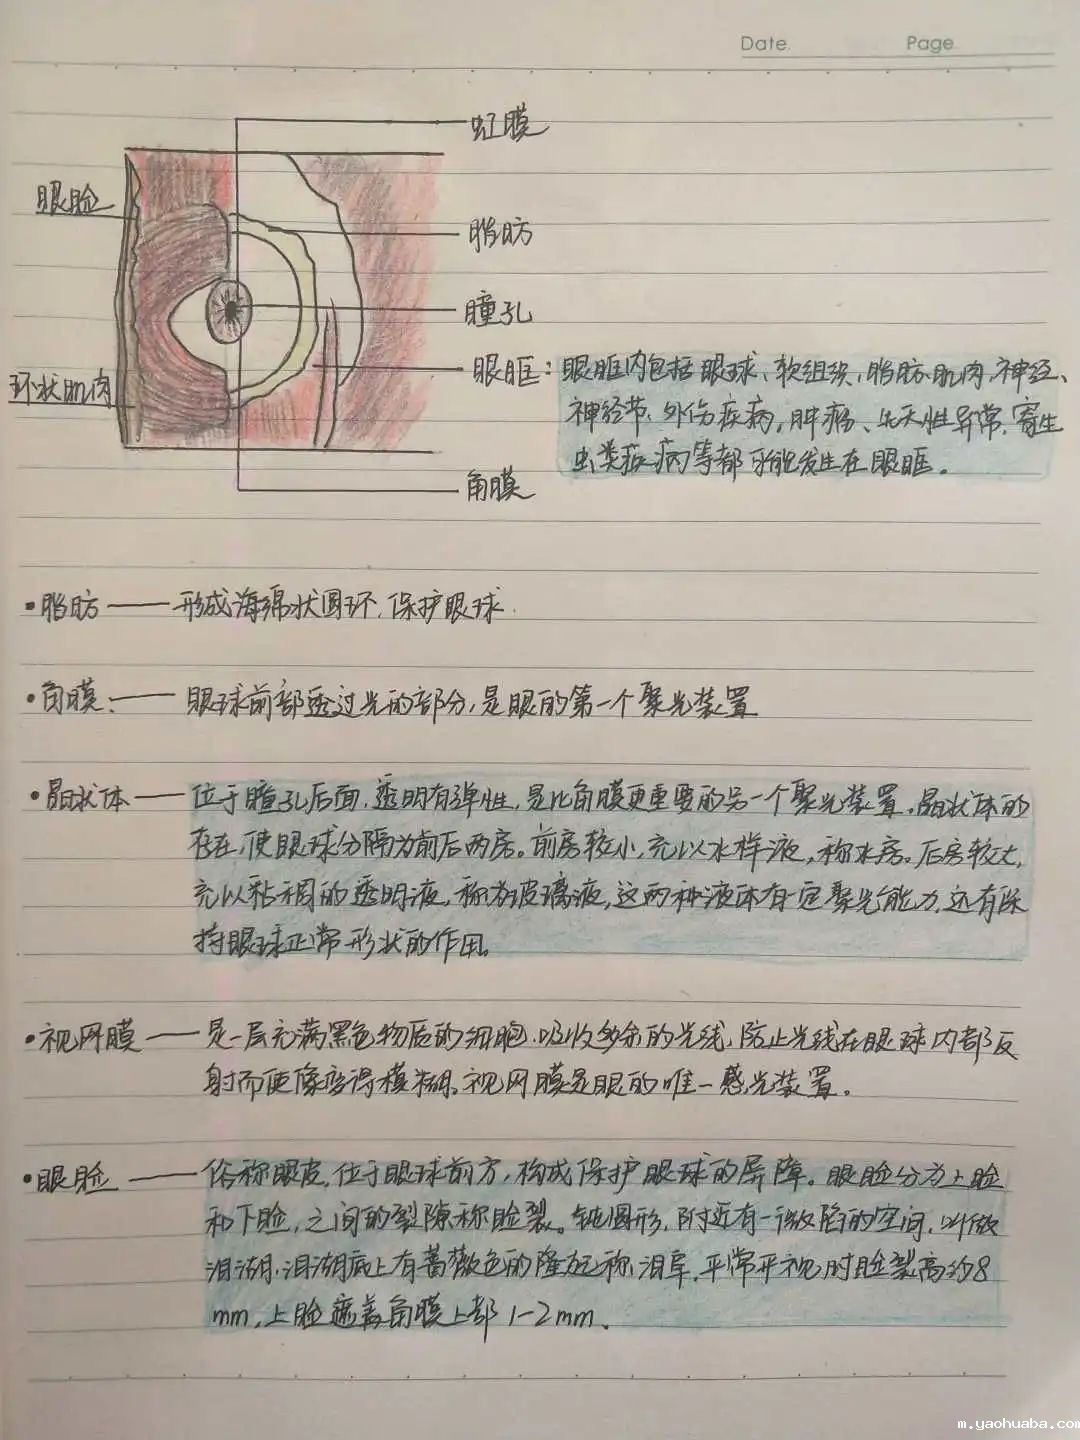 Date    Page
虹膜
眼睑
脂肪
瞳孔
环状肌肉
眼眶：眼眶内包括眼球、软组织、脂肪、肌肉、神经、
神经节、外伤疾病，肿瘤、先天性异常、寄生
虫类疾病等都可能发生在眼眶。
角膜
•脂肪——形成海绵状圆环，保护眼球.
•角膜：——眼球前部透过光的部分，是眼的第一个聚光装置
•晶状体——位于瞳孔后面，透明有弹性，是比角膜更重要的另一个聚光装置。晶状体的
存在，使眼球分隔为前后两房。前房较小，充以水样液，称水房。后房较大，
充以粘稠的透明液，称为玻璃液，这两种液体有一定聚光能力，还有保
持眼球正常形状的作用。
•视网膜——是一层充满黑色物质的细胞，吸收多余的光线，防止光线在眼球内部反
射而使像变得模糊。视网膜是眼的唯一感光装置。
•眼睑——俗称眼皮，位于眼球前方，构成保护眼球的屏障。眼睑分为上睑
和下睑，之间的裂隙称睑裂。钝圆形，附近有一微陷的空间，叫做
泪湖，泪湖底上有蔷薇色的隆起称泪阜，平常平视时睑裂高约8
mm，上睑遮盖角膜上部1-2mm。
m.yaohuaba.com